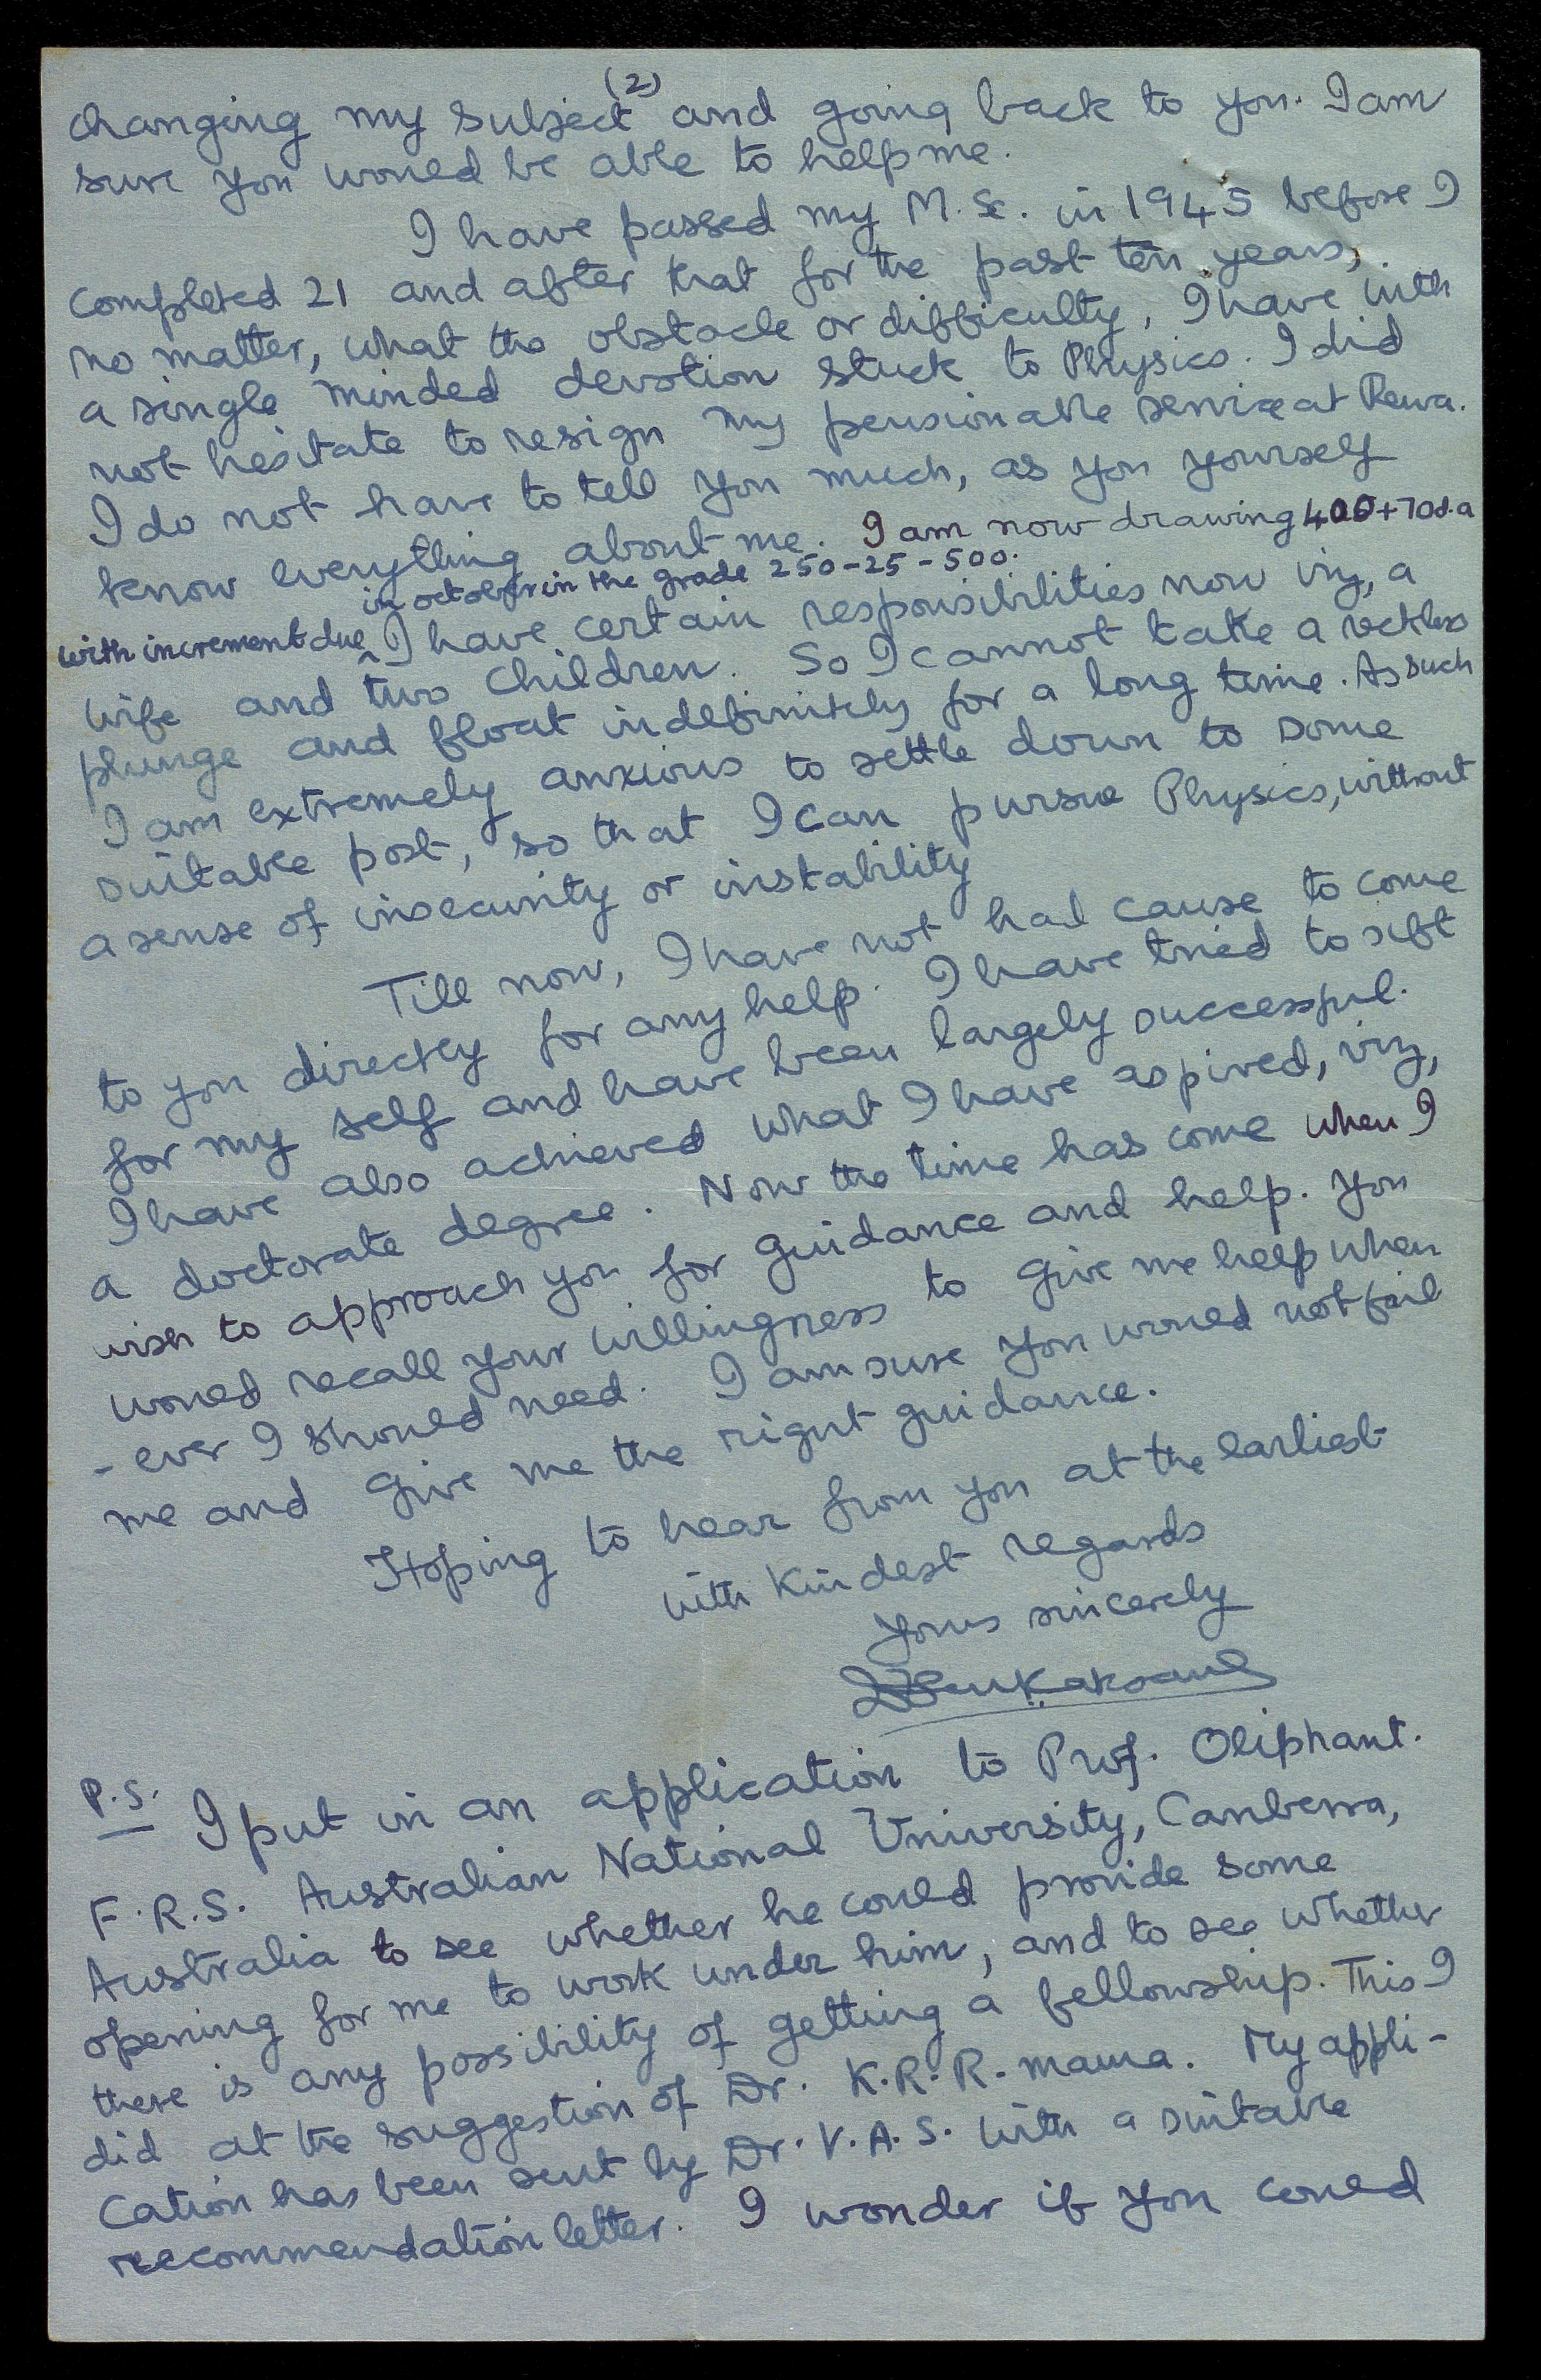 (2)
changing my subject and going back to you. I am
sure you would be able to help me.
I have passed my M.Sc. in 1945 before I
completed 21 and after that for the past ten years,
no matter, what the obstacle or difficulty, I have with
a single minded devotion stuck to Physics. I did
not hesitate to resign my pensionable service at Rewa.
I do not have to tell you much, as you yourself
know everything about me. I am now drawing 400+70d.a
in october in the grade 250-25-500.
with increment due I have certain responsibilities now viz, a
wife and two children. So I cannot take a reckless
plunge and float indefinitely for a long time. As such
I am extremely anxious to settle down to some
suitable post, so that I can pursue Physics, without
a sense of insecurity or instability
Till now, I have not had cause to come
to you directly for any help. I have tried to sift
for my self and have been largely successful.
I have also achieved what I have aspired, viz,
a doctorate degree. Now the time has come when I
wish to approach you for guidance and help. You
would recall your willingness to give me help when
-ever I should need. I am sure you would not fail
me and give me the right guidance.
Hoping to hear from you at the earliest
with Kindest regards
yours sincerely
P.S. I put in an application to Prof. Oliphant.
F.R.S. Australian National University, Canberra,
Australia to see whether he could provide some
opening for me to work under him, and to see whether
there is any possibility of getting a fellowship. This I
did at the suggestion of Dr. K.R.R. mama. My appli-
cation has been sent by Dr. V.A.S. with a suitable
recommendation letter. I wonder if you could